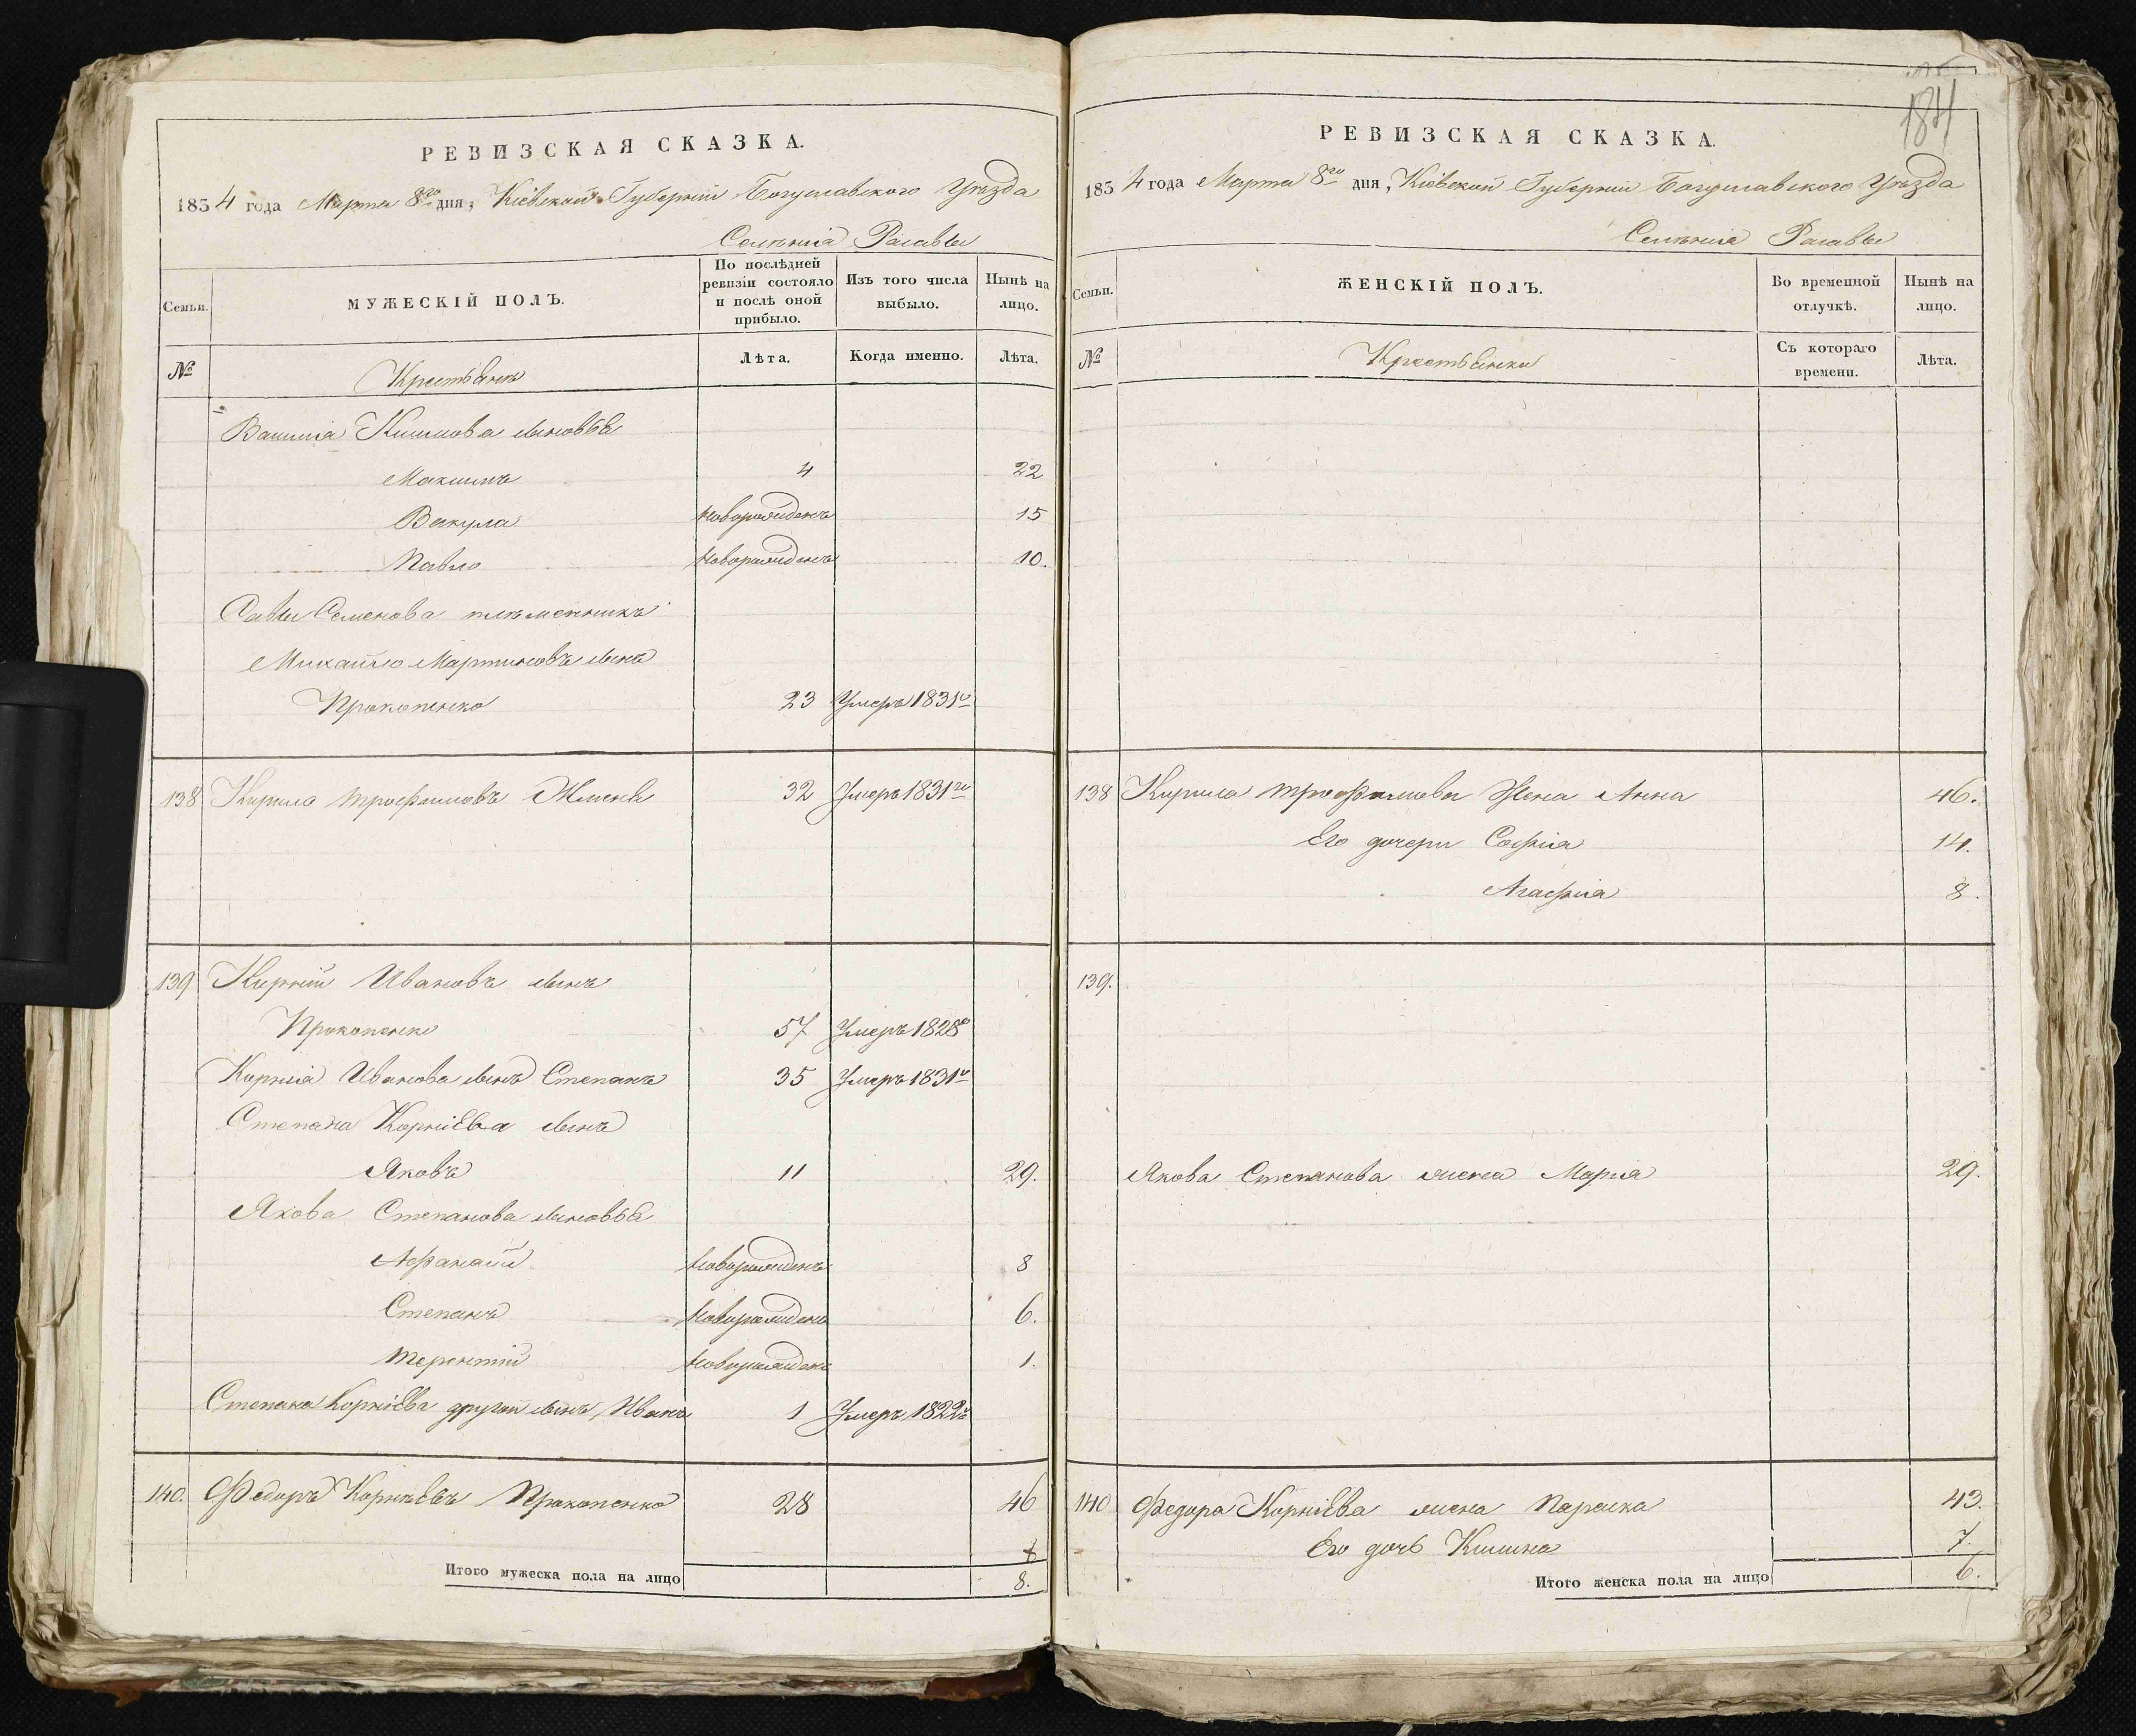 РЕВИЗСКАЯ СКАЗКА.
1834 года Марта 8го дня, Кіевской Губерніи Богуславского Уѣзда
Селенія Расавы
Семьи.
МУЖЕСКІЙ ПОЛЪ.
По послѣдней ревизіи состояло и послѣ оной прибыло.
Изъ того числа выбыло.
Нынѣ на лицо.
№
Крестьяне
Лѣта.
Когда именно.
Лѣта.
сыновья
Максимъ 4 22
Вакула новорожденъ 15
Павло новорожденъ 10.
Савы Семенова племенникъ
Михайло Мартиновъ сынъ
Прокопенко 23 Умеръ 1831го
138 Кирило Трофимовъ 32 Умеръ 1831го
139 Корнѣй Ивановъ сынъ
Прокопенко 57 Умеръ 1828го
Корнія Иванова сынъ Степанъ 35 Умеръ 1831го
Степана Корніева сынъ
Яковъ 11 29.
Якова Степанова сыновья
Афанасій новорожденъ 8
Степанъ новорожденъ 6.
Терентій новорожденъ 1.
Степана Корніева другой сынъ Иванъ 1 Умеръ 1822го
140. Федоръ Корнѣевъ Прокопенко 28 46
Итого мужеска пола на лицо 8.
184
РЕВИЗСКАЯ СКАЗКА.
1834 года Марта 8го дня, Кіевской Губерніи Богуславского Уѣзда
Селенія Расавы
Семьи.
ЖЕНСКІЙ ПОЛЪ.
Во временной отлучкѣ.
Нынѣ на лицо.
№
Крестьянки
Съ котораго времени.
Лѣта.
138 Кирила Трофимова жена Анна 46.
Его дочери Софія 14.
Агафія 8.
139.
Якова Степанова жена Марія 29.
140 Федора Корніева жена Параска 43.
Его дочь Килина 7.
Итого женска пола на лицо 6.